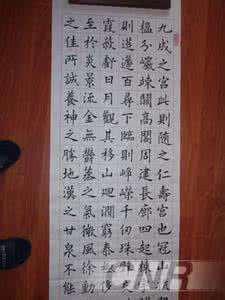 九成之宮此則隨之仁壽宮也冠山
楹分巖竦闕高閣周建長廊四起棟
則迢遰百尋下臨則崢嶸千仞珠
霞蔽虧日月觀其移山迴澗窮泰
至於炎景流金無鬱蒸之氣微風徐動
之佳所誠養神之勝地漢之甘泉不能